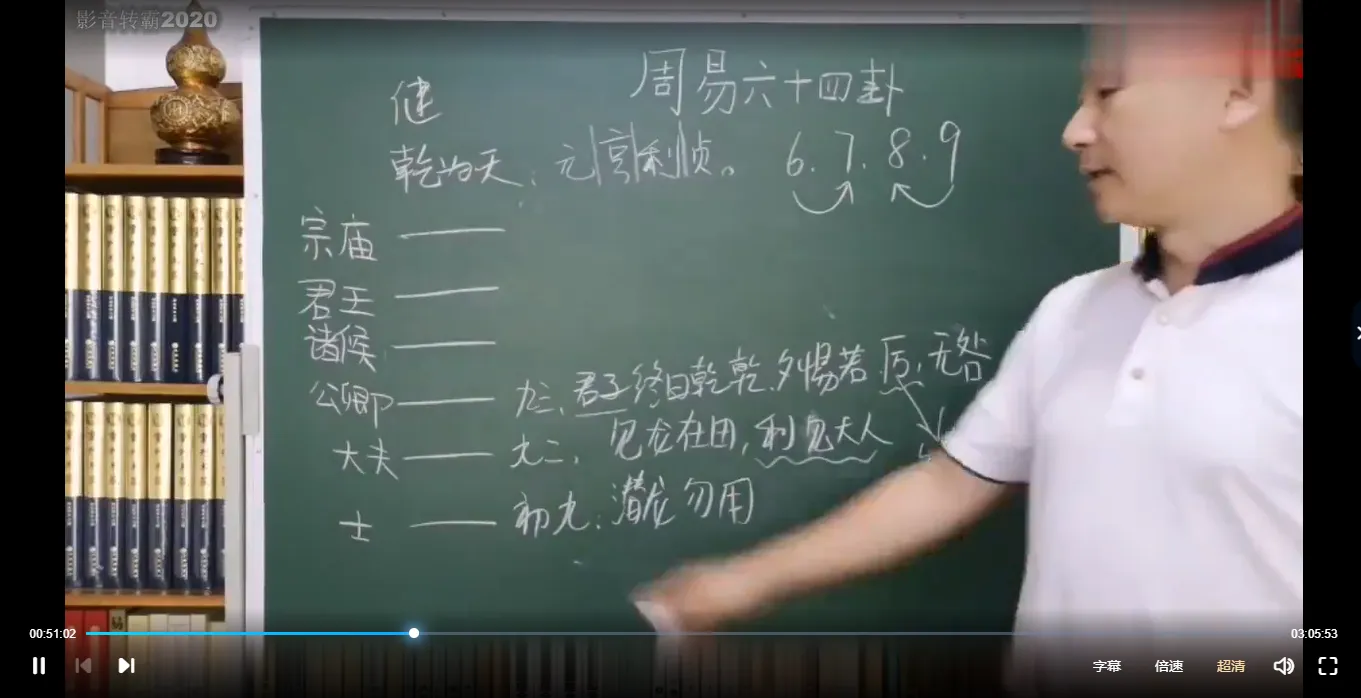 影音转霸2020
周易六十四卦
健
乾为天:元|亨|利|贞。 6.7.8.9
宗庙
君王
诸侯
公卿 九三、君子终日乾乾.夕惕若.厉,无咎
大夫 九二,见龙在田,利见大人
士 初九:潜龙勿用
易
00:51:02
03:05:53
字幕 倍速 超清